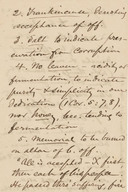 2. Frankincense. Denoting
acceptance of off.
3. Salt to indicate pres-
ervation from Corruption
4. No leaven - acidity or
fermentation to indicate
purity & simplicity in our
Dedications (1 Cor. 5, 7, 8).
nor honey, bec. tending to
fermentation
5. Memorial to be burned
on altar of b. off.
All is accepted - X first
then each of his people
He passed thro suffering fire